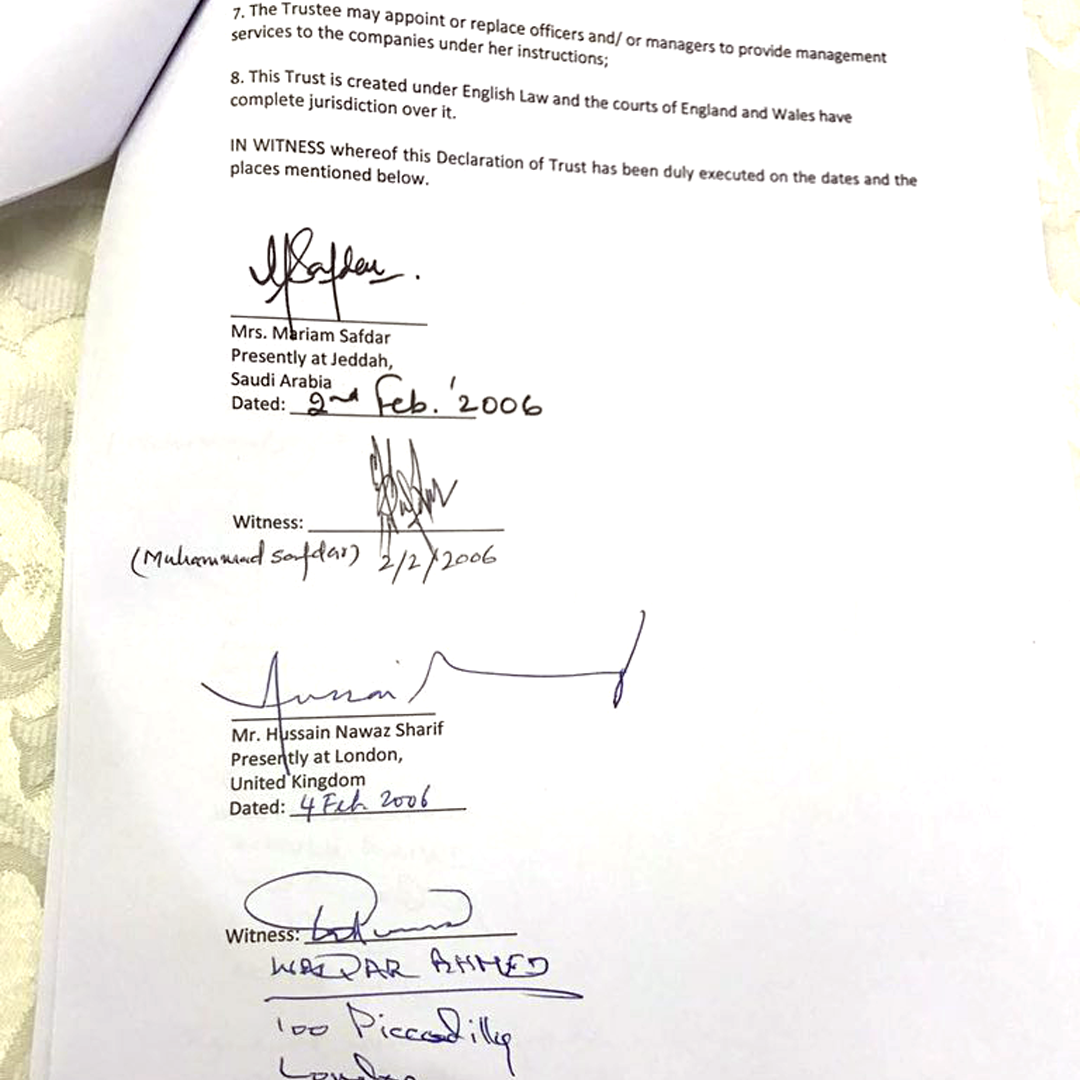 7. The Trustee may appoint or replace officers and/ or managers to provide management
services to the companies under her instructions;
8. This Trust is created under English Law and the courts of England and Wales have
complete jurisdiction over it.
IN WITNESS whereof this Declaration of Trust has been duly executed on the dates and the
places mentioned below.
MSafdar.
Mrs. Mariam Safdar
Presently at Jeddah,
Saudi Arabia
Dated: 2nd Feb. '2006
Witness:
(Muhammad safdar) 2/2/2006
Hussain
Mr. Hussain Nawaz Sharif
Presently at London,
United Kingdom
Dated: 4 Feb 2006
Witness:
WAQAR AHMED
100 Piccadilly
London